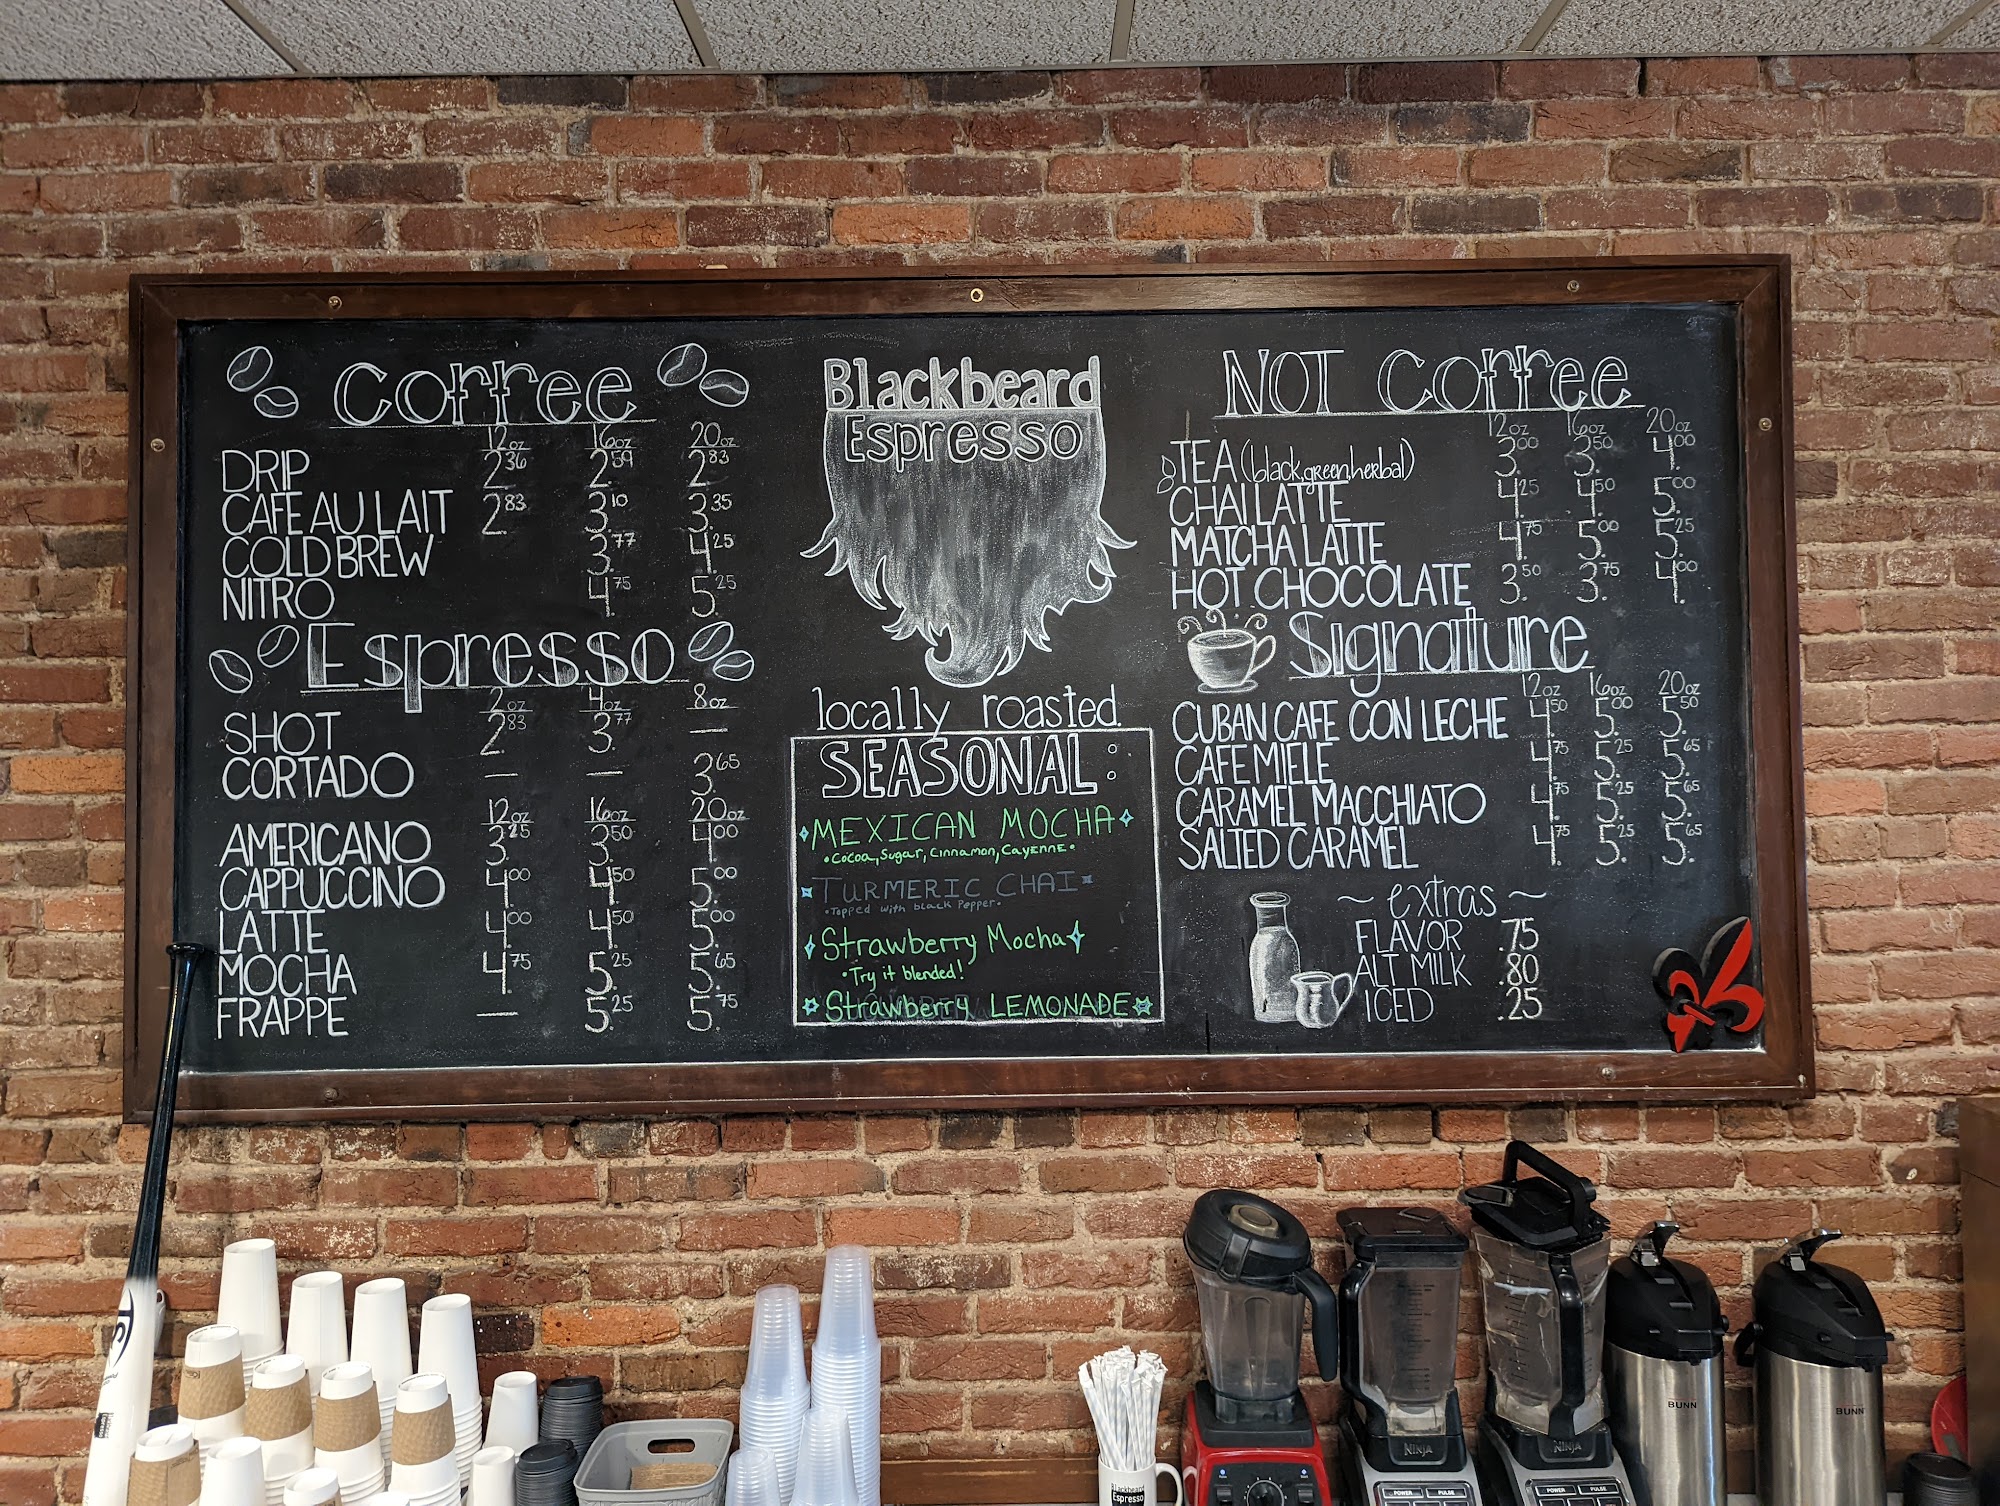 Coffee
12oz 16oz 20oz
DRIP 2.36 2.59 2.83
CAFE AU LAIT 2.83 3.10 3.35
COLD BREW 3.77 4.25
NITRO 4.75 5.25
Espresso
2oz 4oz 8oz
SHOT 2.83 3.77 —
CORTADO — — 3.65
12oz 16oz 20oz
AMERICANO 3.25 3.50 4.00
CAPPUCCINO 4.00 4.50 5.00
LATTE 4.00 4.50 5.00
MOCHA 4.75 5.25 5.65
FRAPPE — 5.25 5.75
Blackbeard
Espresso
locally roasted.
SEASONAL:
MEXICAN MOCHA
•Cocoa, Sugar, Cinnamon, Cayenne•
TURMERIC CHAI
•Topped with black Pepper•
Strawberry Mocha
•Try it blended!
Strawberry LEMONADE
NOT Coffee
12oz 16oz 20oz
TEA (black, green, herbal) 3.00 3.50 4.00
CHAI LATTE 4.25 4.50 5.00
MATCHA LATTE 4.75 5.00 5.25
HOT CHOCOLATE 3.50 3.75 4.00
Signature
12oz 16oz 20oz
CUBAN CAFE CON LECHE 4.50 5.00 5.50
CAFE MIELE 4.75 5.25 5.65
CARAMEL MACCHIATO 4.75 5.25 5.65
SALTED CARAMEL 4.75 5.25 5.65
~ extras ~
FLAVOR .75
ALT MILK .80
ICED .25
BUNN
BUNN
NINJA
NINJA
POWER PULSE
POWER PULSE
Blackbeard
Espresso